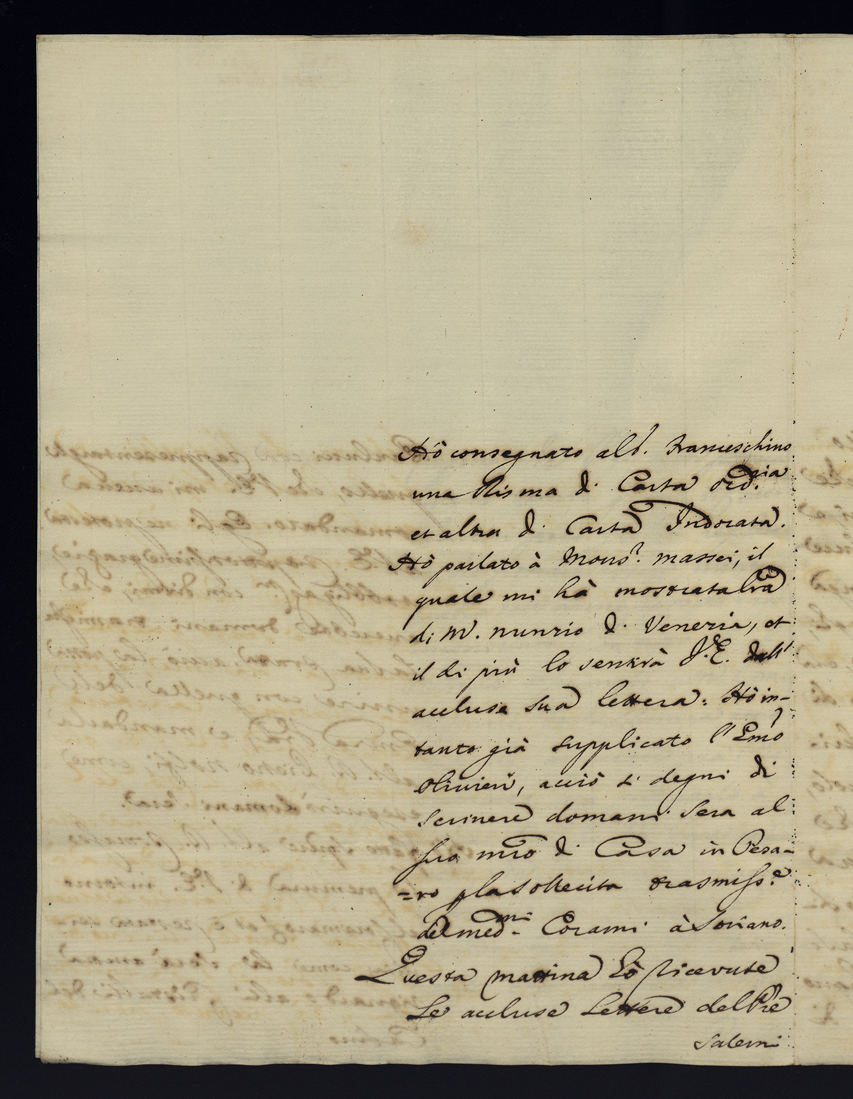 Hò consegnato al S.r Franceschino
una Risma di Carta ord.ria
et altra di Carta Indorata.
Hò parlato à Mons.r Massei, il
quale mi hà mostrata l'ra
di M. Nunzio di Venezia, et
il di più lo sentirà V.E. dall'
acclusa sua lettera: Hò in-
tanto già supplicato l'Emo
Olivieri, acciò si degni di
scrivere domani sera al
suo mro di Casa in Pesa-
=ro p la sollecita trasmiss.e
de med.mi Corami à Soriano.
Questa mattina hò ricevute
le accluse lettere del Pre
Salerni